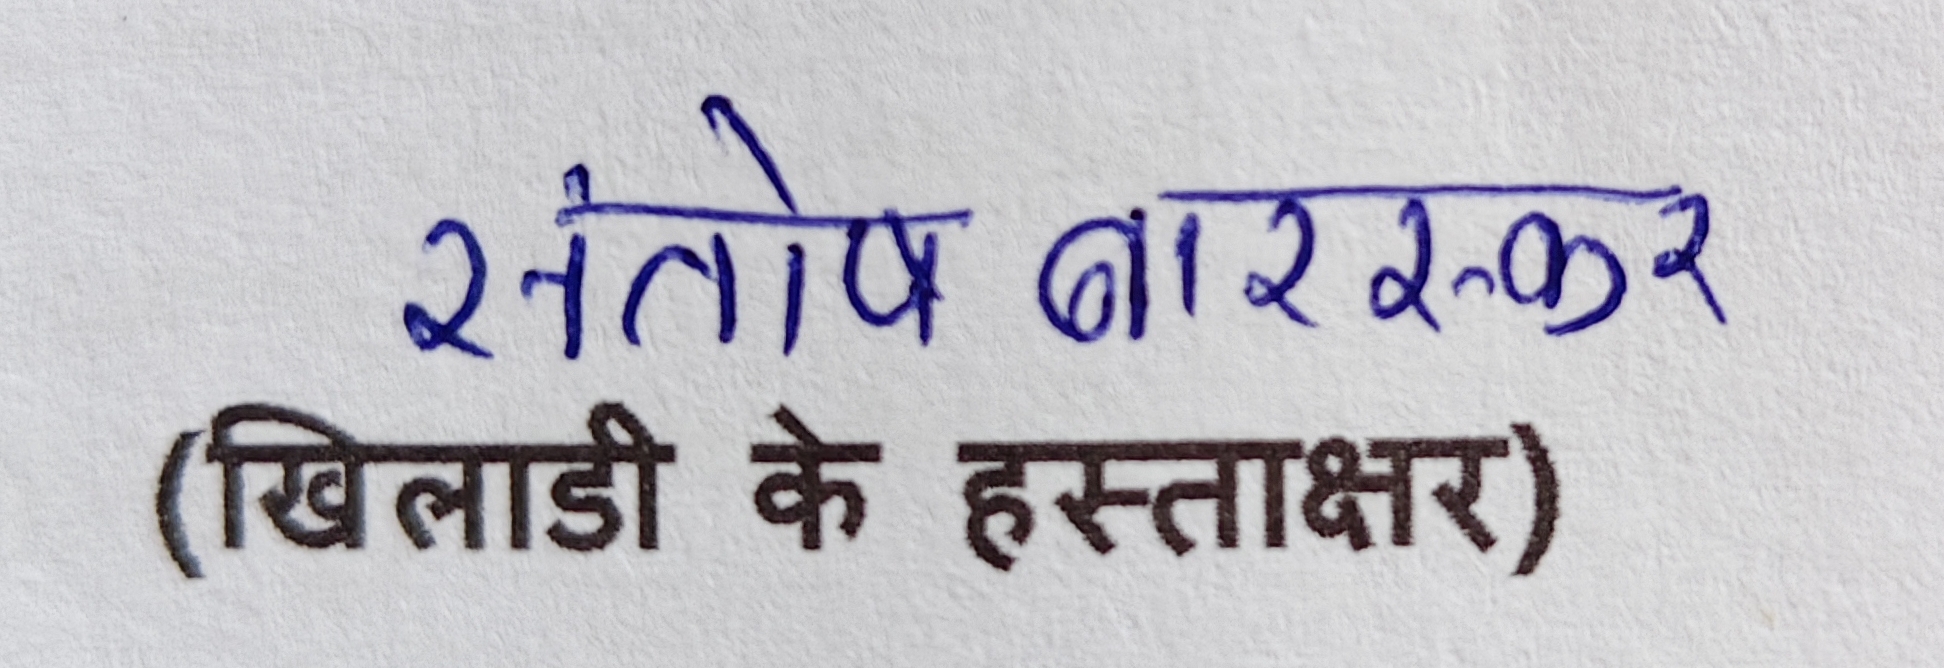 संतोष बारस्कर
(खिलाडी के हस्ताक्षर)